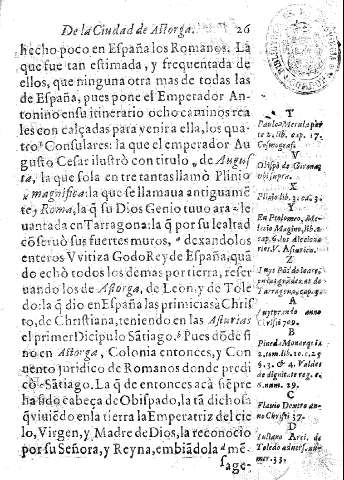 De la Ciudad de Astorga. 26
hecho poco en España los Romanos. La
que fue tan estimada, y frequentada de
ellos, que ninguna otra mas de todas las
de España, pues pone el Emperador An-
tonino en su itinerario ocho caminos rea
les con calçadas para venir a ella, los qua
tro Consulares: la que el emperador Au
gusto Cesar ilustrò con titulo, de Augus
ta, la que sola entre tantas llamò Plinio
magnifica: la que se llamaua antiguamẽ
te y Roma, la q̃ su Dios Genio tuuo ara le
uantada en Tarragona: la q̃ por su lealtad
cõseruò sus fuertes muros, dexandolos
enteros Vvitiza Godo Rey de España, quã
do echò todos los demas por tierra, reser
uando los de Astorga, de Leon, y de Tole
do: la q̃ dio en España las primicias à Chris
to, de Christiana, teniendo en las Asturias
el primer Dicipulo Sãtiago. Pues dõde si
no en Astorga, Colonia entonces, y Con
uento juridico de Romanos donde predi
cò Sãtiago. La q̃ de entonces acà siẽpre
ha sido cabeça de Obispado, la tã dichosa
q̃ viuiẽdo en la tierra la Emperatriz del cie
lo, Virgen, y Madre de Dios, la reconocio
por su Señora, y Reyna, embiãdola mẽ-
sage-
T
Paulo Merula par
te 2. lib. exp. 17.
Cosmograf.
V
Obispo de Girona
ubi supra.
X
Plinio lib. 3. ca. 3.
Y
En Ptolomeo, Me-
cio Magino, lib. 2.
cap. 6. los Alcobia
ries. V. Asturica.
Z
Tarragona, cap. 9.
A
Christi 709.
B
2. tom. lib. 10. c. 25
§. 3. & 4. Valdes
de dignitate reg. c.
6. num. 29.
C
Flauio Dextro an-
no Christi 37.
D
Iuliano Arci. de
Toledo aduers. nu-
mer. 33.